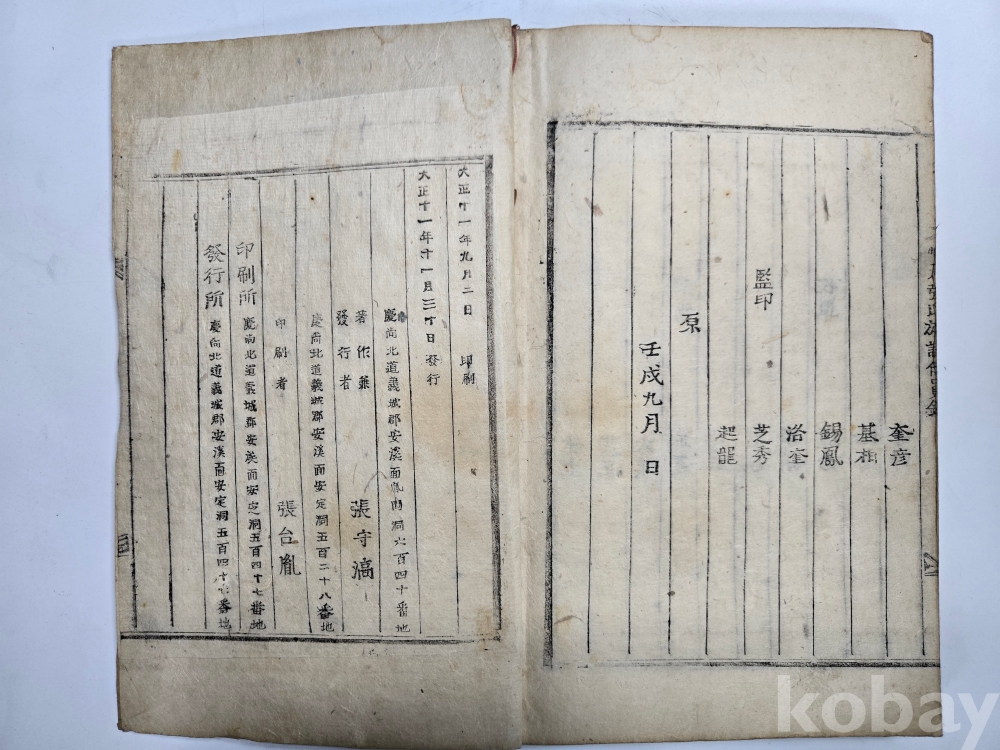 奎彦
基相
錫鳳
洛奎
監印
芝秀
起龍
原
壬戌九月 日
大正十一年九月二日 印刷
大正十一年十一月三十日 發行
慶尙北道義城郡安溪面 洞六百四十番地
著作兼
發行者
張守
慶尙北道義城郡安溪面安定洞五百二十八番地
印刷者
張台胤
印刷所
慶尙北道義城郡安溪面安定洞五百四十七番地
發行所
慶尙北道義城郡安溪面安定洞五百四十七番地
kobay